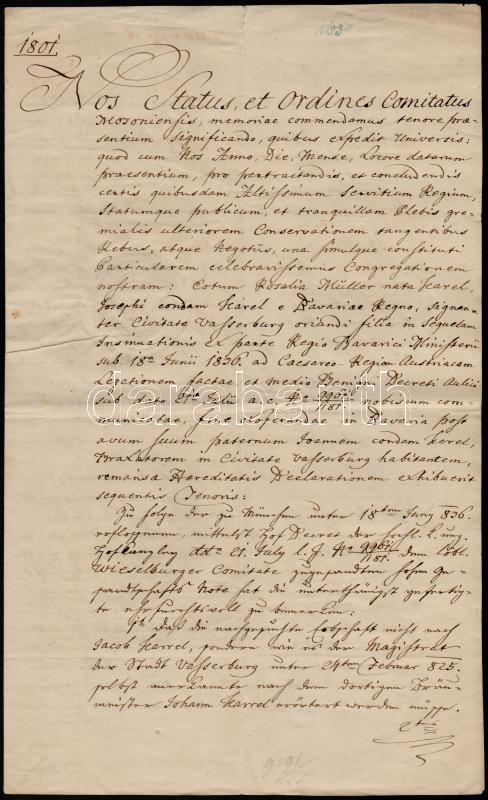 1801.
Nos Status, et Ordines Comitatus
Mosoniensis, memoriae commendamus tenore prae-
sentium significando, quibus expedit Universis:
quod cum Nos Anno, Die, Mense, Locove datarum
praesentium, pro pertractandis, et concludendis
certis quibusdam Altissimum Servitium Regium,
Statumque publicum, et tranquillam Plebis gre-
mialis ulteriorem Conservationem tangentibus
Rebus, atque Negotiis, una simulque constituti
Particularem celebravissemus Congregationem
nostram: Cotum Rosalia Müller nata Karel,
Josephi condam Karel e Bavariae Regno, signan-
ter Civitate Vasserburg oriundi filia in Sequelam
Insinuationis ex parte Regio Bavarici Ministerii
sub 18a Junii 1836. ad Caesareo-Regiam Austriacam
Legationem factae, et medio Benigni Decreti Aulici
sub dato Julii a. c. 9961/181 nobiscum com-
municatae, fine in Bavaria post
avum suum paternum Joannem condam Karel,
Braxatorem in Civitate Vasserburg habitantem,
remansa Hereditatis Declarationem exhibuerit
sequentis Tenoris:
Zu folge der zu München unter 18ten Juny 836.
erflossenen, mittelst Hof Decret der königl. ung.
Hofkanzley ddto 21. July l. J. No 9961/181. dem löbl.
Wieselburger Comitate zugesandten hohen Ge-
sandtschafts Note hat die unterthänigst gefertig-
te ehrfurchtsvoll zu bemerken:
1t Daß die nachgesuchte Erbschaft nicht nach
Jacob Karrel, sondern wie es der Magistrat
der Stadt Vasserburg unter 24ten Februar 825.
selbst anerkannte nach dem dortigen Bräu-
meister Johann Karrel erörtert werden müsse.
darabanth.com